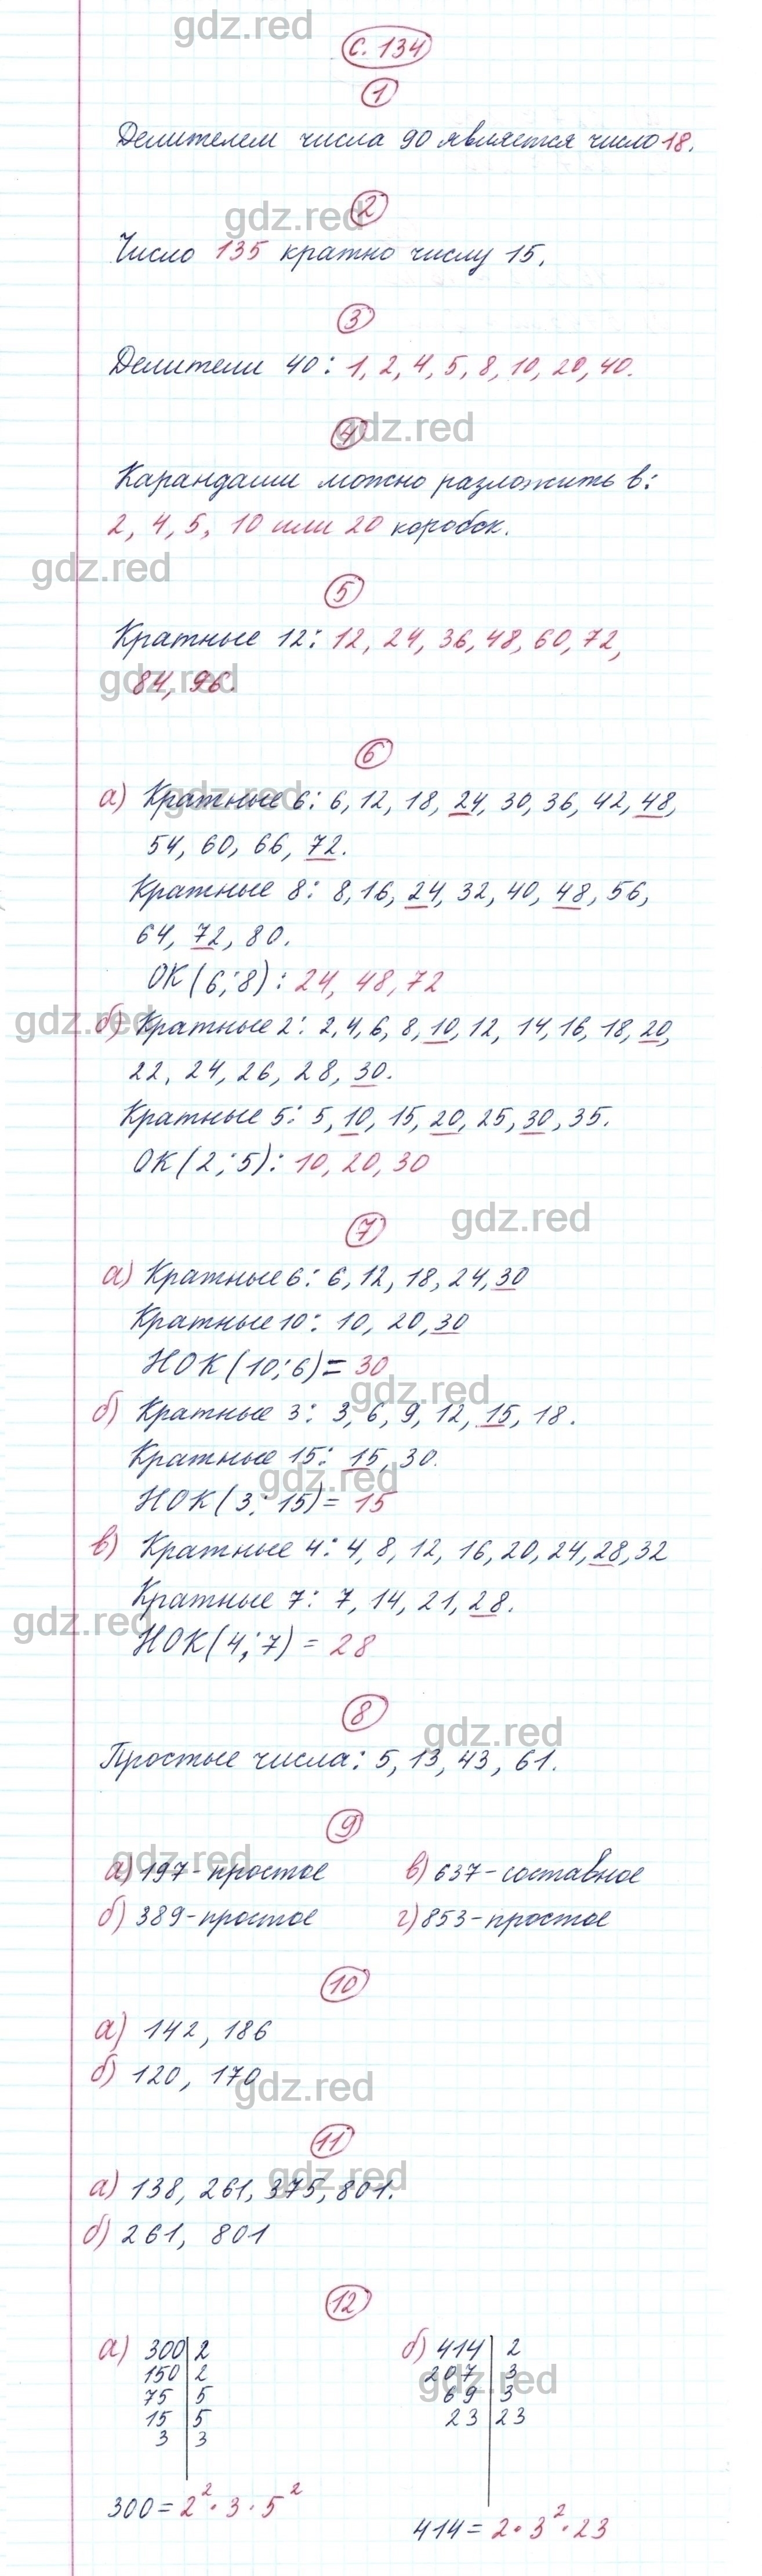 gdz.red
с. 134
1
Делителем числа 90 является число 18.
2
gdz.red
Число 135 кратно числу 15.
3
Делители 40: 1, 2, 4, 5, 8, 10, 20, 40.
4
gdz.red
Карандаши можно разложить в:
2, 4, 5, 10 или 20 коробок.
gdz.red
5
Кратные 12: 12, 24, 36, 48, 60, 72,
84, 96.
gdz.red
6
а) Кратные 6: 6, 12, 18, 24, 30, 36, 42, 48,
gdz.red
54, 60, 66, 72.
Кратные 8: 8, 16, 24, 32, 40, 48, 56,
64, 72, 80.
ОК(6;8): 24, 48, 72
gdz.red
б) Кратные 2: 2, 4, 6, 8, 10, 12, 14, 16, 18, 20,
22, 24, 26, 28, 30.
Кратные 5: 5, 10, 15, 20, 25, 30, 35.
ОК(2;5): 10, 20, 30
7
gdz.red
а) Кратные 6: 6, 12, 18, 24, 30
Кратные 10: 10, 20, 30
НОК(10;6)= 30
gdz.red
б) Кратные 3: 3, 6, 9, 12, 15, 18.
Кратные 15: 15, 30.
gdz.red
НОК(3;15)= 15
в) Кратные 4: 4, 8, 12, 16, 20, 24, 28, 32
Кратные 7: 7, 14, 21, 28.
gdz.red
НОК(4;7) = 28
8
gdz.red
Простые числа: 5, 13, 43, 61.
9
gdz.red
а) 197 - простое в) 637 - составное
б) 389 - простое г) 853 - простое
10
а) 142, 186
б) 120, 170
gdz.red
11
gdz.red
а) 138, 261, 375, 801.
б) 261, 801
12
а) 300 | 2 б) 414 | 2
150 | 2 207 | 3
gdz.red
75 | 5 69 | 3
15 | 5 23 | 23
3 | 3
300 = 2² · 3 · 5²
414 = 2 · 3² · 23